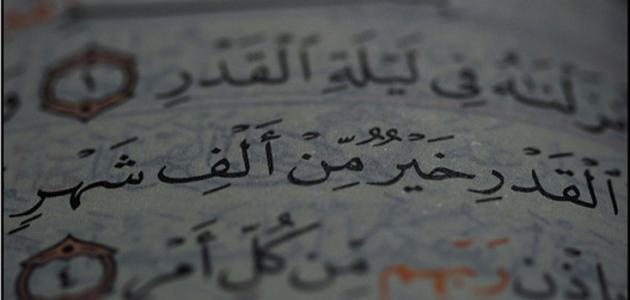 أَنزَلْنَـٰهُ فِى لَيْلَةِ ٱلْقَدْرِ ١
ٱلْقَدْرِ خَيْرٌ مِّنْ أَلْفِ شَهْرٍ
بِإِذْنِ رَبِّهِم مِّن كُلِّ أَمْرٍ ٤